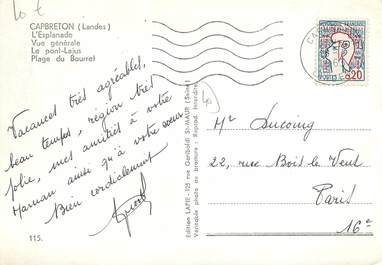 10 €
CAPBRETON (Landes)
L'Esplanade
Vue générale
Le pont-Lajus
Plage du Bourret
RÉPUBLIQUE FRANÇAISE
POSTES
0,20
Vacances très agréables,
beau temps, région très
jolie, mes amitiés à votre
Maman ainsi qu'à votre sœur
Bien cordialement
Edition LAPIE - 125 rue Garibaldi St-MAUR (Seine)
Véritable photo au bromure : Reprod. Interdite
Mr Ducoing
22, rue Bois le Vent
Paris
16e
115.